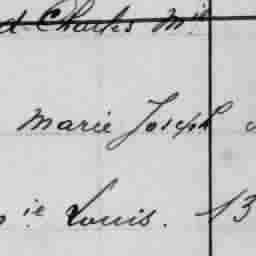 d Charles Mie
Marie Joseph
ie Louis. 13